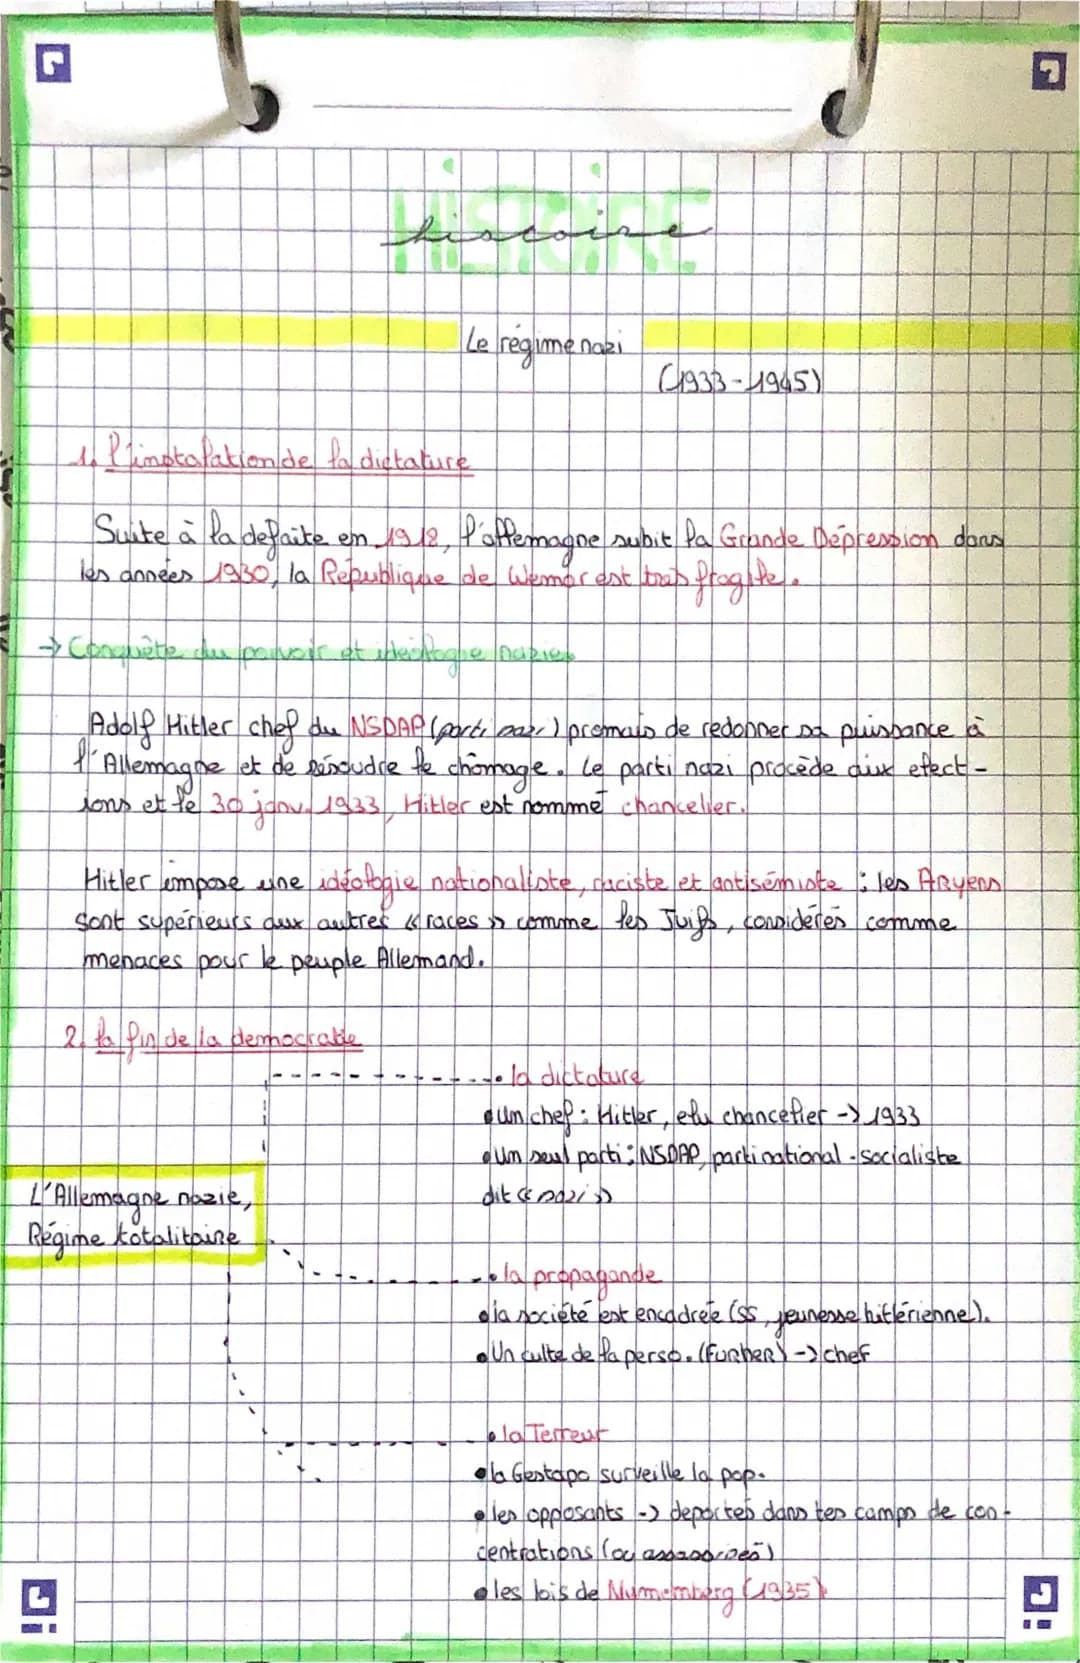 HISTOIRE
histoire
Le régime nazi
(1933-1945)
1. l'installation de la dictature
Suite à la defaite en 1918, l'allemagne subit la Grande Dépression dans
les années 1930, la République de Wemar est très fragile.
→ Conquête du pouvoir et idéologie nazies
Adolf Hitler chef du NSDAP (parti nazi) promais de redonner sa puissance à
l'Allemagne et de résoudre le chômage. Le parti nazi procède aux elect-
ions et le 30 janv. 1933, Hitler est nommé chancelier.
Hitler impose une idéologie nationaliste, raciste et antisémiste : les Aryens
sont supérieurs aux autres « races » comme les Juifs, considérés comme
menaces pour le peuple Allemand.
2. la fin de la democratie
• la dictature
• Un chef : Hitler, elu chancelier -> 1933
• Um seul parti : NSDAP, parti national-socialiste
dit « nazi »
L'Allemagne nazie,
Régime totalitaire
• la propagande
• la société est encadrée (SS, jeunesse hitlérienne).
• Un culte de la perso. (Furher) -> chef
• la Terreur
• la Gestapo surveille la pop.
• les opposants -> deportés dans les camps de con-
centrations (ou assassinés)
• les lois de Nuremberg (1935)